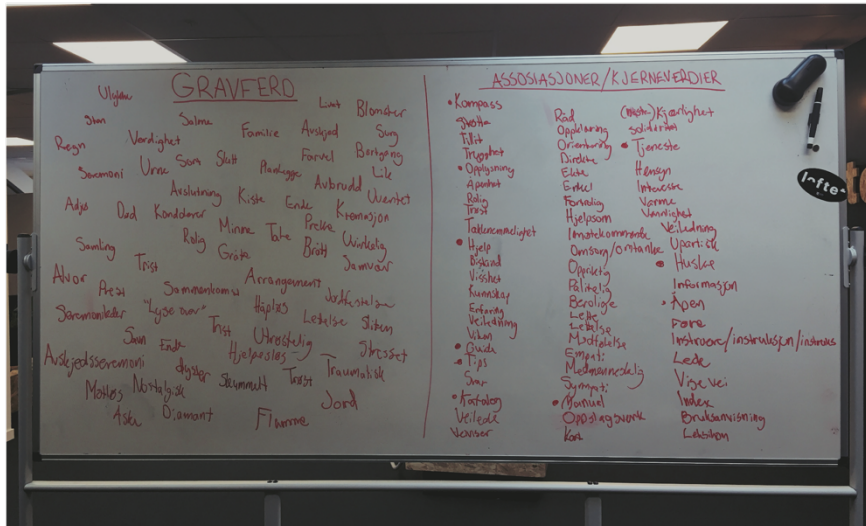 GRAVFERD
Blomster
Salme
Familie Avskjed Sorg
Regn Verdighet
Sorn Slutt Farvel Bortgang
Seremoni Urne Planlegge Lik
Avslutning Kiste Ende Avbrudd Uventet
Adjø Død Kondolerer Minne Tale Preke Kremasjon
Rolig Gråte Brått Virkelig
Samling Trist Samvær
Alvor Prest Sammenkomst Arrangement Jordfestelse
Seremonileder "Lyse over" Håpløs Lettelse Sliten
Trist Utrøstelig
Savn Endt Hjelpesløs Stresset
Avskjedsseremoni Dyster Skummelt Trøst Traumatisk
Motløs Nostalgisk Jord
Aske Diamant Flamme
ASSOSIASJONER/KJERNEVERDIER
• Kompass
Støtte
Tillit
Trygghet
• Opplysning
Åpenhet
Rolig
Trøst
Taknemmelighet
• Hjelp
Bistand
Visshet
Kunnskap
Erfaring
Veiledning
Viten
• Guide
• Tips
Svar
• Katalog
Veilede
Råd
Oppklaring
Orientering
Direkte
Ekte
Enkel
Fortrolig
Hjelpsom
Imøtekommende
Omsorg/omtanke
Oppriktig
Pålitelig
Berolige
Lette
Lettelse
Medfølelse
Empati
Medmenneskelig
Sympati
• Manual
Oppslagsverk
Kart
(neste)Kjærlighet
solidaritet
• Tjeneste
Hensyn
Interesse
Varme
Vennlighet
Veiledning
Upartisk
• Huske
Informasjon
• Åpen
Føre
Instruere/instruksjon/instruks
Lede
Vise vei
Index
Bruksanvisning
Leksikon
lofte